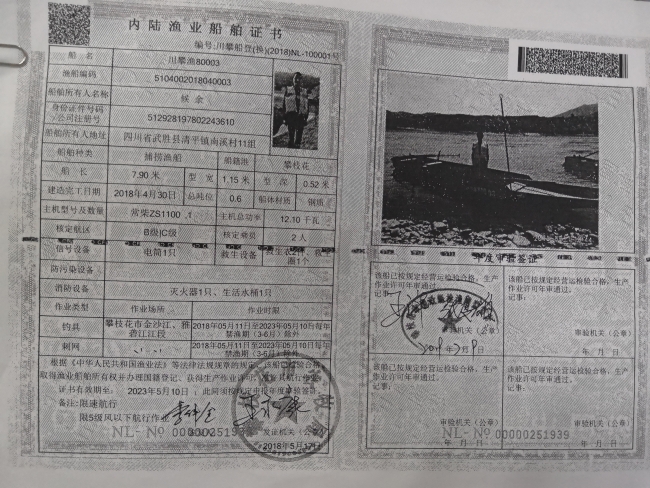 内陆渔业船舶证书
编号:川攀船登(换)(2018)NL-100001号
船名 川攀渔80003
渔船编码 5104002018040003
船舶所有人名称 候余
身份证件号码/公司注册号 512928197802243610
船舶所有人地址 四川省武胜县清平镇南溪村11组
船舶种类 捕捞渔船 船籍港 攀枝花
船长 7.90 米 型宽 1.15 米 型深 0.52 米
建造完工日期 2018年4月30日 总吨位 0.6 船体材质 钢质
主机型号及数量 常柴ZS1100 ,1 主机总功率 12.10 千瓦
核定航区 B级|C级 核定乘员 2 人
信号设备 电筒1只 救生设备 救生衣2件、救生圈1个
防污染设备
消防设备 灭火器1只、生活水桶1只
作业类型 作业场所 作业时限
钓具 攀枝花市金沙江、雅砻江江段 2018年05月11日至2023年05月10日每年禁渔期(3-6月)除外
刺网 2018年05月11日至2023年05月10日每年禁渔期(3-6月)除外
根据《中华人民共和国渔业法》等法律法规规章的规定,该船已检验合格,
取得渔业船舶所有权并办理国籍登记、获得生产作业许可,准予其航行作业。
证书有效期至: 2023年5月10日,此间须按规定申报年度审验签证。
备注:限速航行
限5级风以下航行作业
发证机关(公章)
2018年5月17日
NL- No 00000251939
年度审验签证
该船已按规定经营运检验合格,生产作业许可年审通过。
记事:
2019年2月19日
审验机关(公章)
年 月 日
该船已按规定经营运检验合格,生产作业许可年审通过。
记事:
审验机关(公章)
年 月 日
该船已按规定经营运检验合格,生产作业许可年审通过。
记事:
审验机关(公章)
年 月 日
该船已按规定经营运检验合格,生产作业许可年审通过。
记事:
审验机关(公章)
年 月 日
NL- No 00000251939